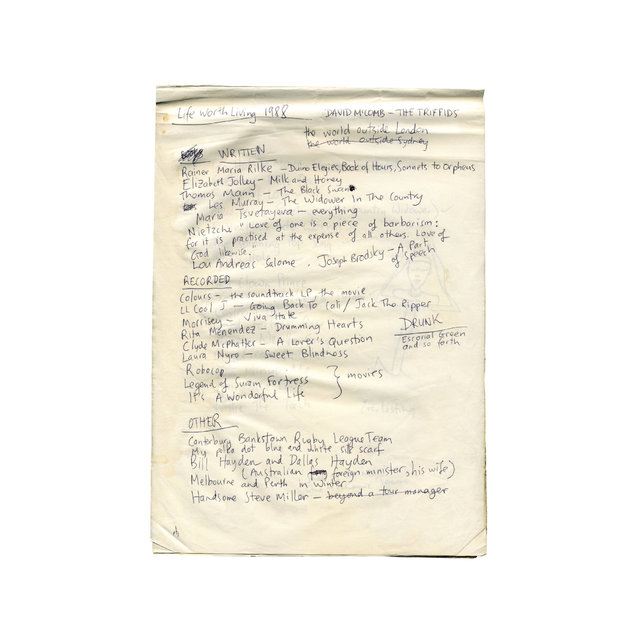 Life Worth Living 1988
DAVID McCOMB - THE TRIFFIDS
the world outside London
the world outside Sydney
WRITTEN
Rainer Maria Rilke - Duino Elegies, Book of Hours, Sonnets to Orpheus
Elizabeth Jolley - Milk and Honey
Thomas Mann - The Black Swan
Les Murray - The Widower In The Country
Maria Tsvetayeva - everything
Nietzche "Love of one is a piece of barbarism:
for it is practised at the expense of all others. Love of
God likewise.
Lou Andreas Salome. Joseph Brodsky - A Part
of Speech
RECORDED
Colours - the soundtrack LP the movie
LL Cool J - Going Back To Cali / Jack The Ripper
Morrisey - Viva Hate
Rita Menendez - Drumming Hearts
Clyde McPhatter - A Lover's Question
Laura Nyro - Sweet Blindness
DRUNK
Escorial Green
and so forth
Robocop
Legend of Suram Fortress
It's A Wonderful Life
} movies
OTHER
Canterbury Bankstown Rugby League Team
My polka dot blue and white silk scarf
Bill Hayden and Dallas Hayden
(Australian foreign minister, his wife)
Melbourne and Perth in Winter
Handsome Steve Miller - beyond a tour manager